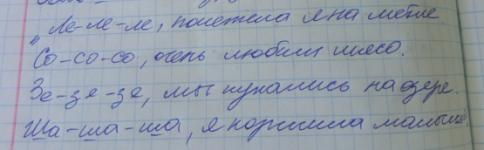 „Ле-ле-ле, полетела я на метле
Со-со-со, очень любили мясо.
Зе-зе-зе, мы купались на озере.
Ша-ша-ша, я кормила малыша